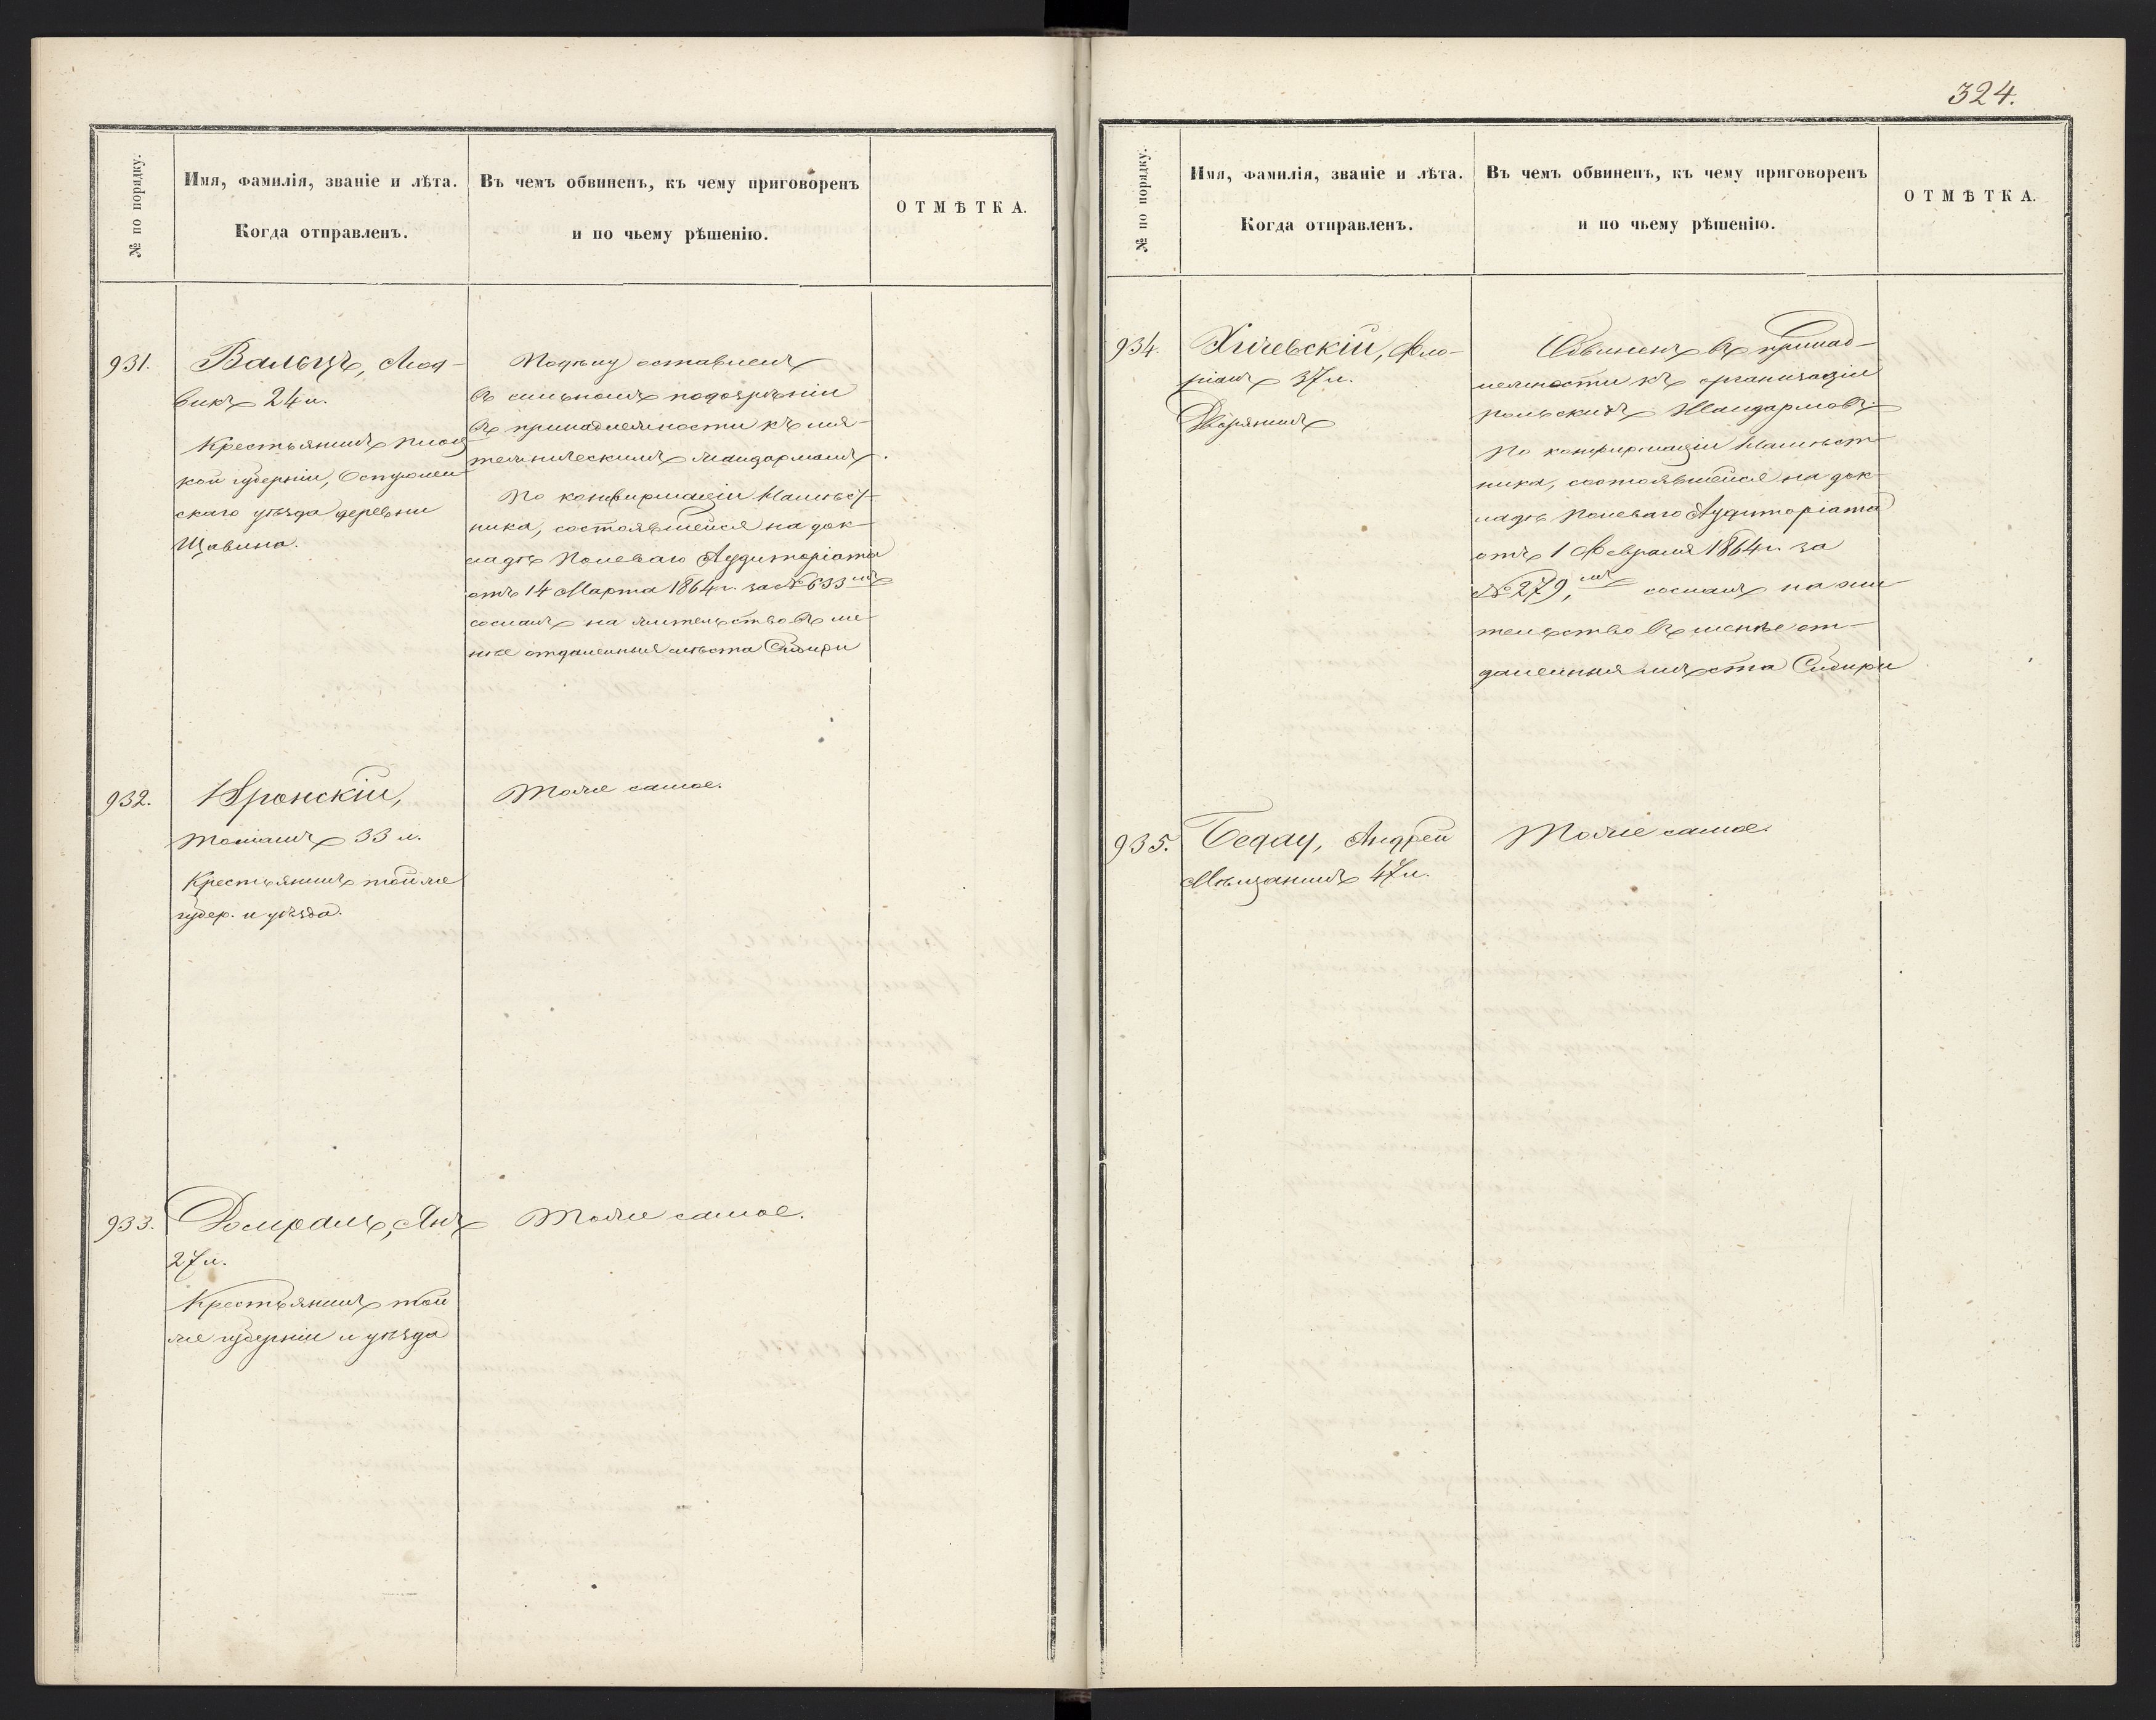 № по порядку.
Имя, фамилія, званіе и лѣта.
Когда отправленъ.
Въ чемъ обвиненъ, къ чему приговоренъ
и по чьему рѣшенію.
ОТМѢТКА.
931.
Вальцъ, Люд-
викъ 24 л.
Крестьянинъ Плоц
кой губерніи, Остролен
скаго уѣзда деревни
Щавина.
оставленъ
въ сильномъ подозрѣніи
въ принадлежности къ мя-
тежническимъ жандармамъ.
По конфирмаціи Намѣст-
ника, состоявшейся на док-
ладѣ Полеваго Аудиторіата
отъ 14 Марта 1864 г. за № 633 мъ
сосланъ на жительство въ ме-
нѣе отдаленныя мѣста Сибири
932.
33 л.
Крестьянинъ той же
губер. и уѣзда.
Тоже самое.
933.
Янъ
27 л.
Крестьянинъ той
же губерніи и уѣзда
Тоже самое.
324.
№ по порядку.
Имя, фамилія, званіе и лѣта.
Когда отправленъ.
Въ чемъ обвиненъ, къ чему приговоренъ
и по чьему рѣшенію.
ОТМѢТКА.
934.
Фло-
ріанъ 37 л.
Дворянинъ
Обвиненъ въ принад-
лежности къ организаціи
польскихъ Жандармовъ.
По конфирмаціи Намѣст-
ника, состоявшейся на док-
ладѣ Полеваго Аудиторіата
отъ 1 Февраля 1864 г. за
№ 279, мъ сосланъ на жи
тельство въ менѣе от-
даленныя мѣста Сибири
935.
Бедау, Андрей
Мѣщанинъ 47 л.
Тоже самое.